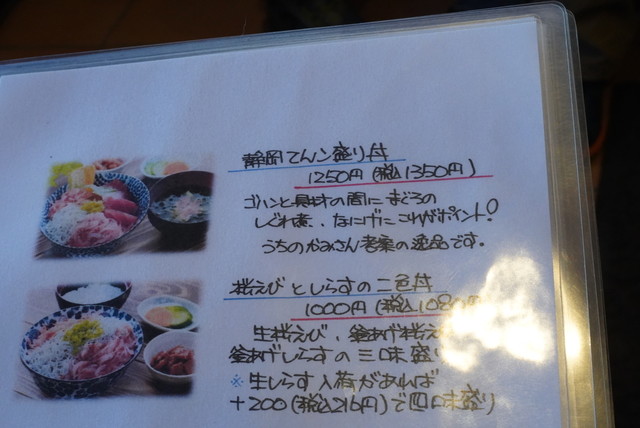 静岡てんこ盛り丼
1250円(税込1350円)
ゴハンと具材の間にまぐろの
しぐれ煮、なにげにこれがポイント!
うちのかみさん考案の逸品です。
桜えびとしらすの二色丼
1000円(税込1080円
生桜えび、釜あげ桜え
釜あげしらすの三味盛り
※生しらす入荷があれば
+200(税込216円)で四味盛り